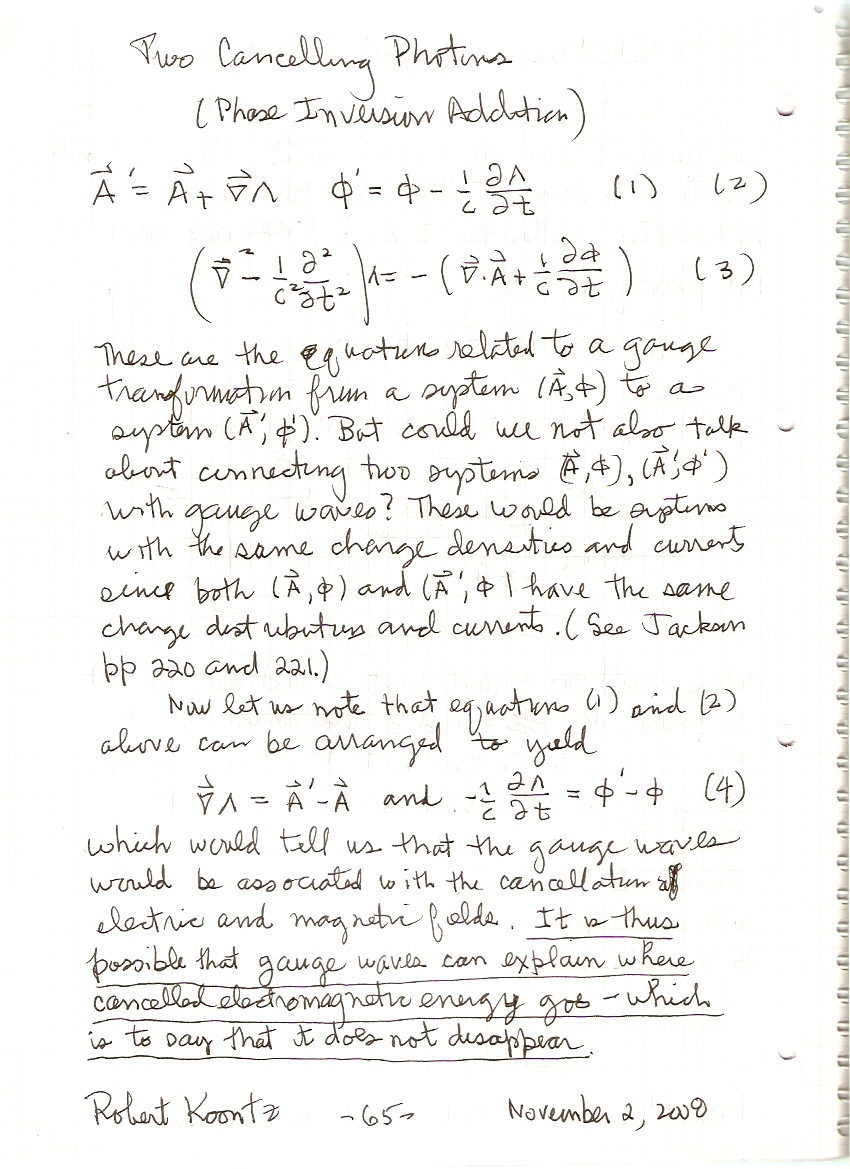 Two Cancelling Photons
(Phase Inversion Addition)
A⃗' = A⃗ + ∇⃗Λ   ϕ' = ϕ - 1/c ∂Λ/∂t   (1)   (2)
(∇⃗² - 1/c² ∂²/∂t²)Λ = - (∇⃗·A⃗ + 1/c ∂ϕ/∂t)   (3)
These are the equations related to a gauge
transformation from a system (A⃗,ϕ) to a
system (A⃗',ϕ'). But could we not also talk
about connecting two systems (A⃗,ϕ), (A⃗',ϕ')
with gauge waves? These would be systems
with the same charge densities and currents
since both (A⃗,ϕ) and (A⃗',ϕ) have the same
charge distributions and currents. (See Jackson
pp 220 and 221.)
Now let us note that equations (1) and (2)
above can be arranged to yield
∇⃗Λ = A⃗' - A⃗ and -1/c ∂Λ/∂t = ϕ' - ϕ   (4)
which would tell us that the gauge waves
would be associated with the cancellation of
electric and magnetic fields. It is thus
possible that gauge waves can explain where
cancelled electromagnetic energy goes - which
is to say that it does not disappear.
Robert Koontz   -65-   November 2, 2008